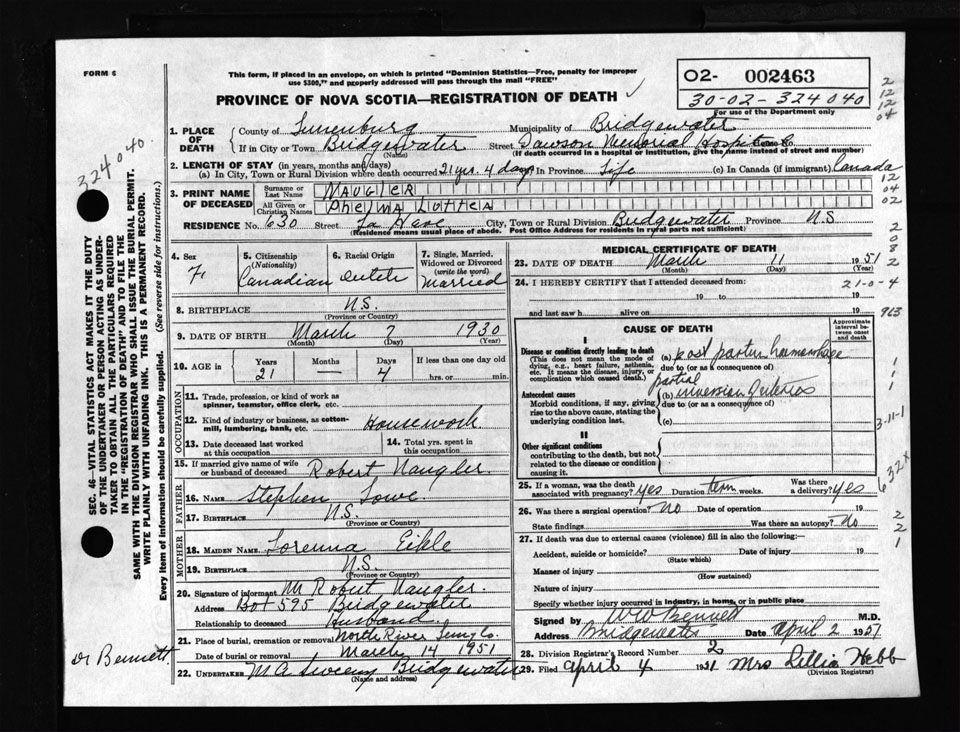 FORM 6
This form, if placed in an envelope, on which is printed "Dominion Statistics—Free, penalty for improper
use $300," and properly addressed will pass through the mail "FREE"
PROVINCE OF NOVA SCOTIA—REGISTRATION OF DEATH
02- 002463
30-02-324040
For use of the Department only
2
12
12
04
324040.
1. PLACE OF DEATH
County of Lunenburg Municipality of Bridgewater
If in City or Town Bridgewater Street Dawson Memorial Hospital
(Name) (If death occurred in a hospital or institution, give the name instead of street and number)
2. LENGTH OF STAY (in years, months and days)
(a) In City, Town or Rural Division where death occurred 21 yrs. 4 days In Province Life (c) In Canada (if immigrant) Canada
12
04
02
3. PRINT NAME OF DECEASED
Surname or Last Name NAUGLER
All Given or Christian Names LOTTEA
RESIDENCE No. 630 Street La Have City, Town or Rural Division Bridgewater Province N.S.
(Residence means usual place of abode. Post Office Address for residents in rural parts not sufficient)
4. Sex F.
5. Citizenship (Nationality) Canadian
6. Racial Origin Dutch
7. Single, Married, Widowed or Divorced (write the word) Married
8. BIRTHPLACE N.S.
(Province or Country)
9. DATE OF BIRTH March 7 1930
(Month) (Day) (Year)
10. AGE in Years Months Days If less than one day old
21 — 4 hrs. or min.
OCCUPATION
11. Trade, profession, or kind of work as spinner, teamster, office clerk, etc.
12. Kind of industry or business, as cotton-mill, lumbering, bank, etc. Housework
13. Date deceased last worked at this occupation
14. Total yrs. spent in this occupation
15. If married give name of wife or husband of deceased Robert Naugler.
FATHER
16. NAME Stephen Lowe.
17. BIRTHPLACE N.S.
(Province or Country)
MOTHER
18. MAIDEN NAME Lorenna
19. BIRTHPLACE N.S.
(Province or Country)
20. Signature of informant Mr Robert Naugler.
Address Box 595 Bridgewater
Relationship to deceased Husband
21. Place of burial, cremation or removal North River Lung Co.
Date of burial or removal March 14 1951
22. UNDERTAKER M A Sweeny Bridgewater
(Name and address)
Dr Bennett
MEDICAL CERTIFICATE OF DEATH
23. DATE OF DEATH March 11 1951
(Month) (Day) (Year)
24. I HEREBY CERTIFY that I attended deceased from:
21-0-4
19 to 19
and last saw h alive on 19
963
CAUSE OF DEATH
Approximate interval between onset and death
I
Disease or condition directly leading to death
(This does not mean the mode of dying, e.g., heart failure, asthenia, etc. It means the disease, injury, or complication which caused death.)
(a) post partum haemorrhage
due to (or as a consequence of)
Antecedent causes
Morbid conditions, if any, giving rise to the above cause, stating the underlying condition last.
partial
(b) inversion of uterus
due to (or as a consequence of)
(c)
3-11-1
II
Other significant conditions contributing to the death, but not related to the disease or condition causing it.
25. If a woman, was the death associated with pregnancy? yes Duration term weeks. Was there a delivery? yes
26. Was there a surgical operation? No Date of operation 19
State findings Was there an autopsy? No
27. If death was due to external causes (violence) fill in also the following:—
Accident, suicide or homicide? Date of injury 19
(State which)
Manner of injury
(How sustained)
Nature of injury
Specify whether injury occurred in industry, in home, or in public place
Signed by W W Bennett M.D.
Address Bridgewater Date April 2 1951
28. Division Registrar's Record Number 2
29. Filed April 4 1951 Mrs Lillia Hebb
(Division Registrar)
SEC. 46—VITAL STATISTICS ACT MAKES IT THE DUTY
OF THE UNDERTAKER OR PERSON ACTING AS UNDER-
TAKER TO OBTAIN ALL THE PARTICULARS REQUIRED
IN THE "REGISTRATION OF DEATH" AND TO FILE THE
SAME WITH THE DIVISION REGISTRAR WHO SHALL ISSUE THE BURIAL PERMIT.
WRITE PLAINLY WITH UNFADING INK. THIS IS A PERMANENT RECORD.
Every item of information should be carefully supplied. (See reverse side for instructions.)